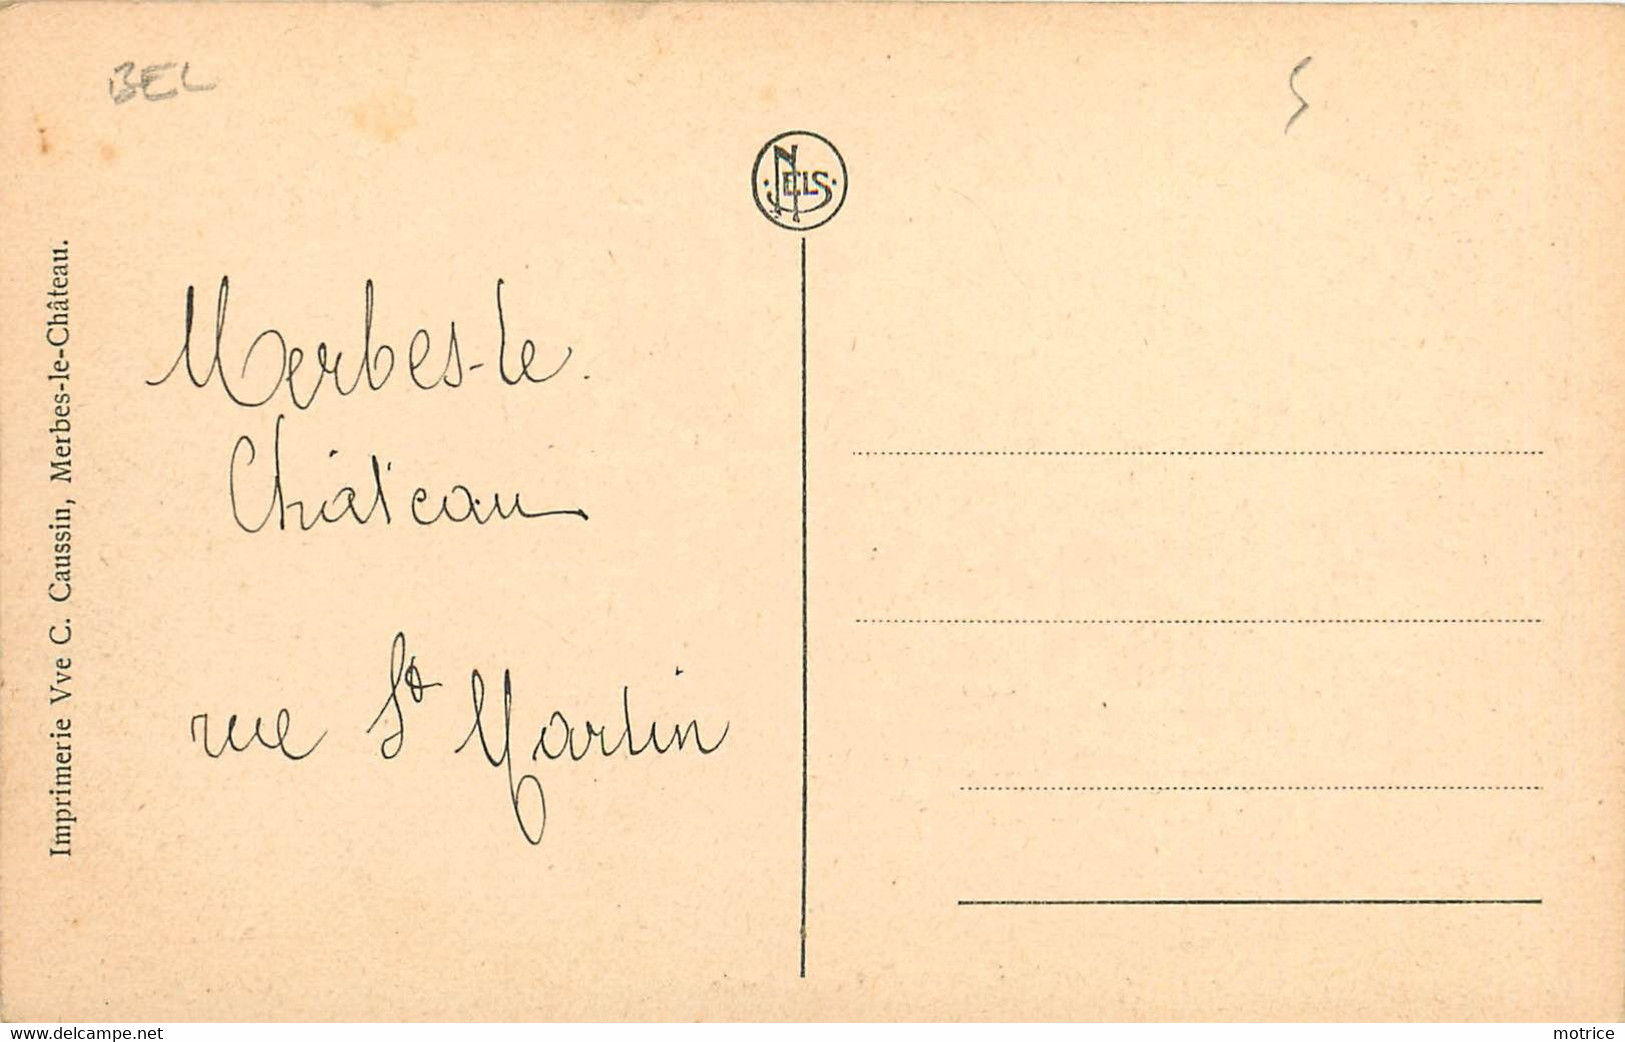 BEL
5
NELS
Imprimerie Vve C. Caussin, Merbes-le-Château.
Merbes-le
Château
rue St Martin
www.delcampe.net
motrice